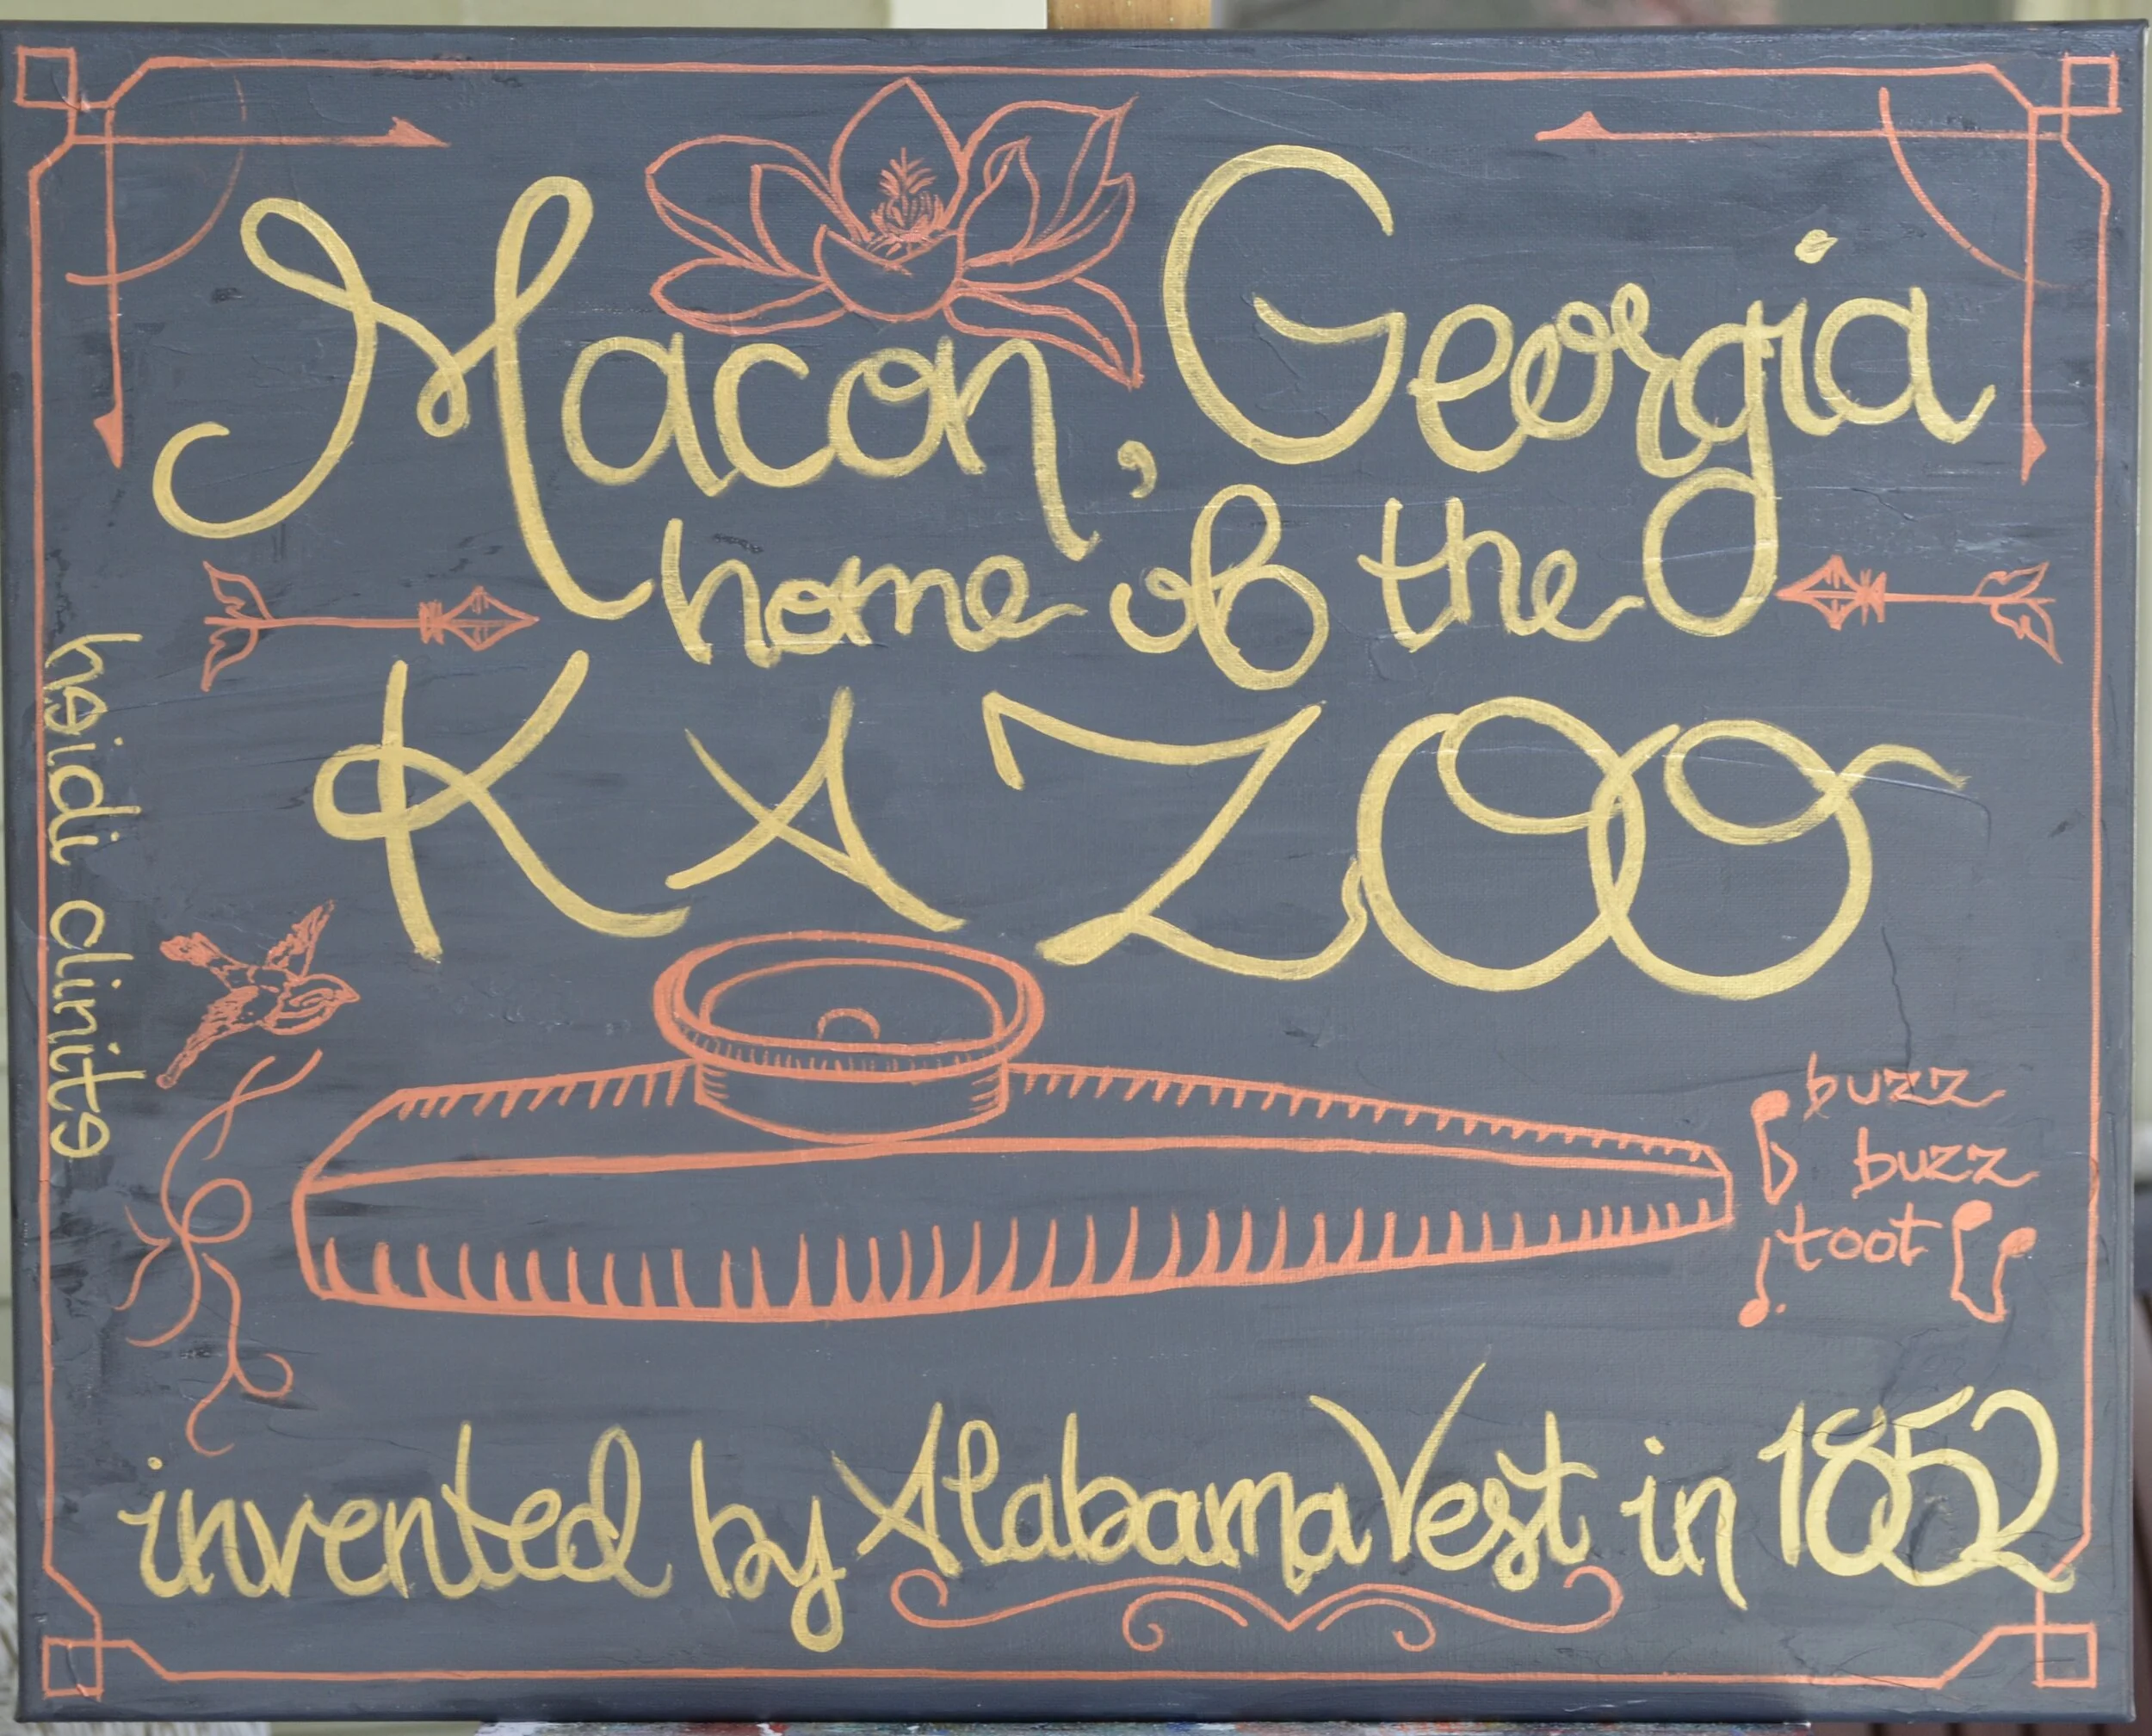 Macon, Georgia
home of the
KAZOO
buzz
buzz
toot
invented by Alabama Vest in 1852
heidi clinite